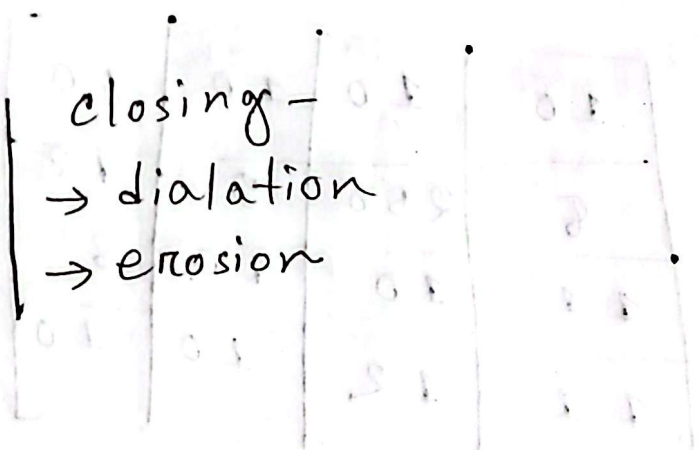 closing -
→ dialation
→ erosion